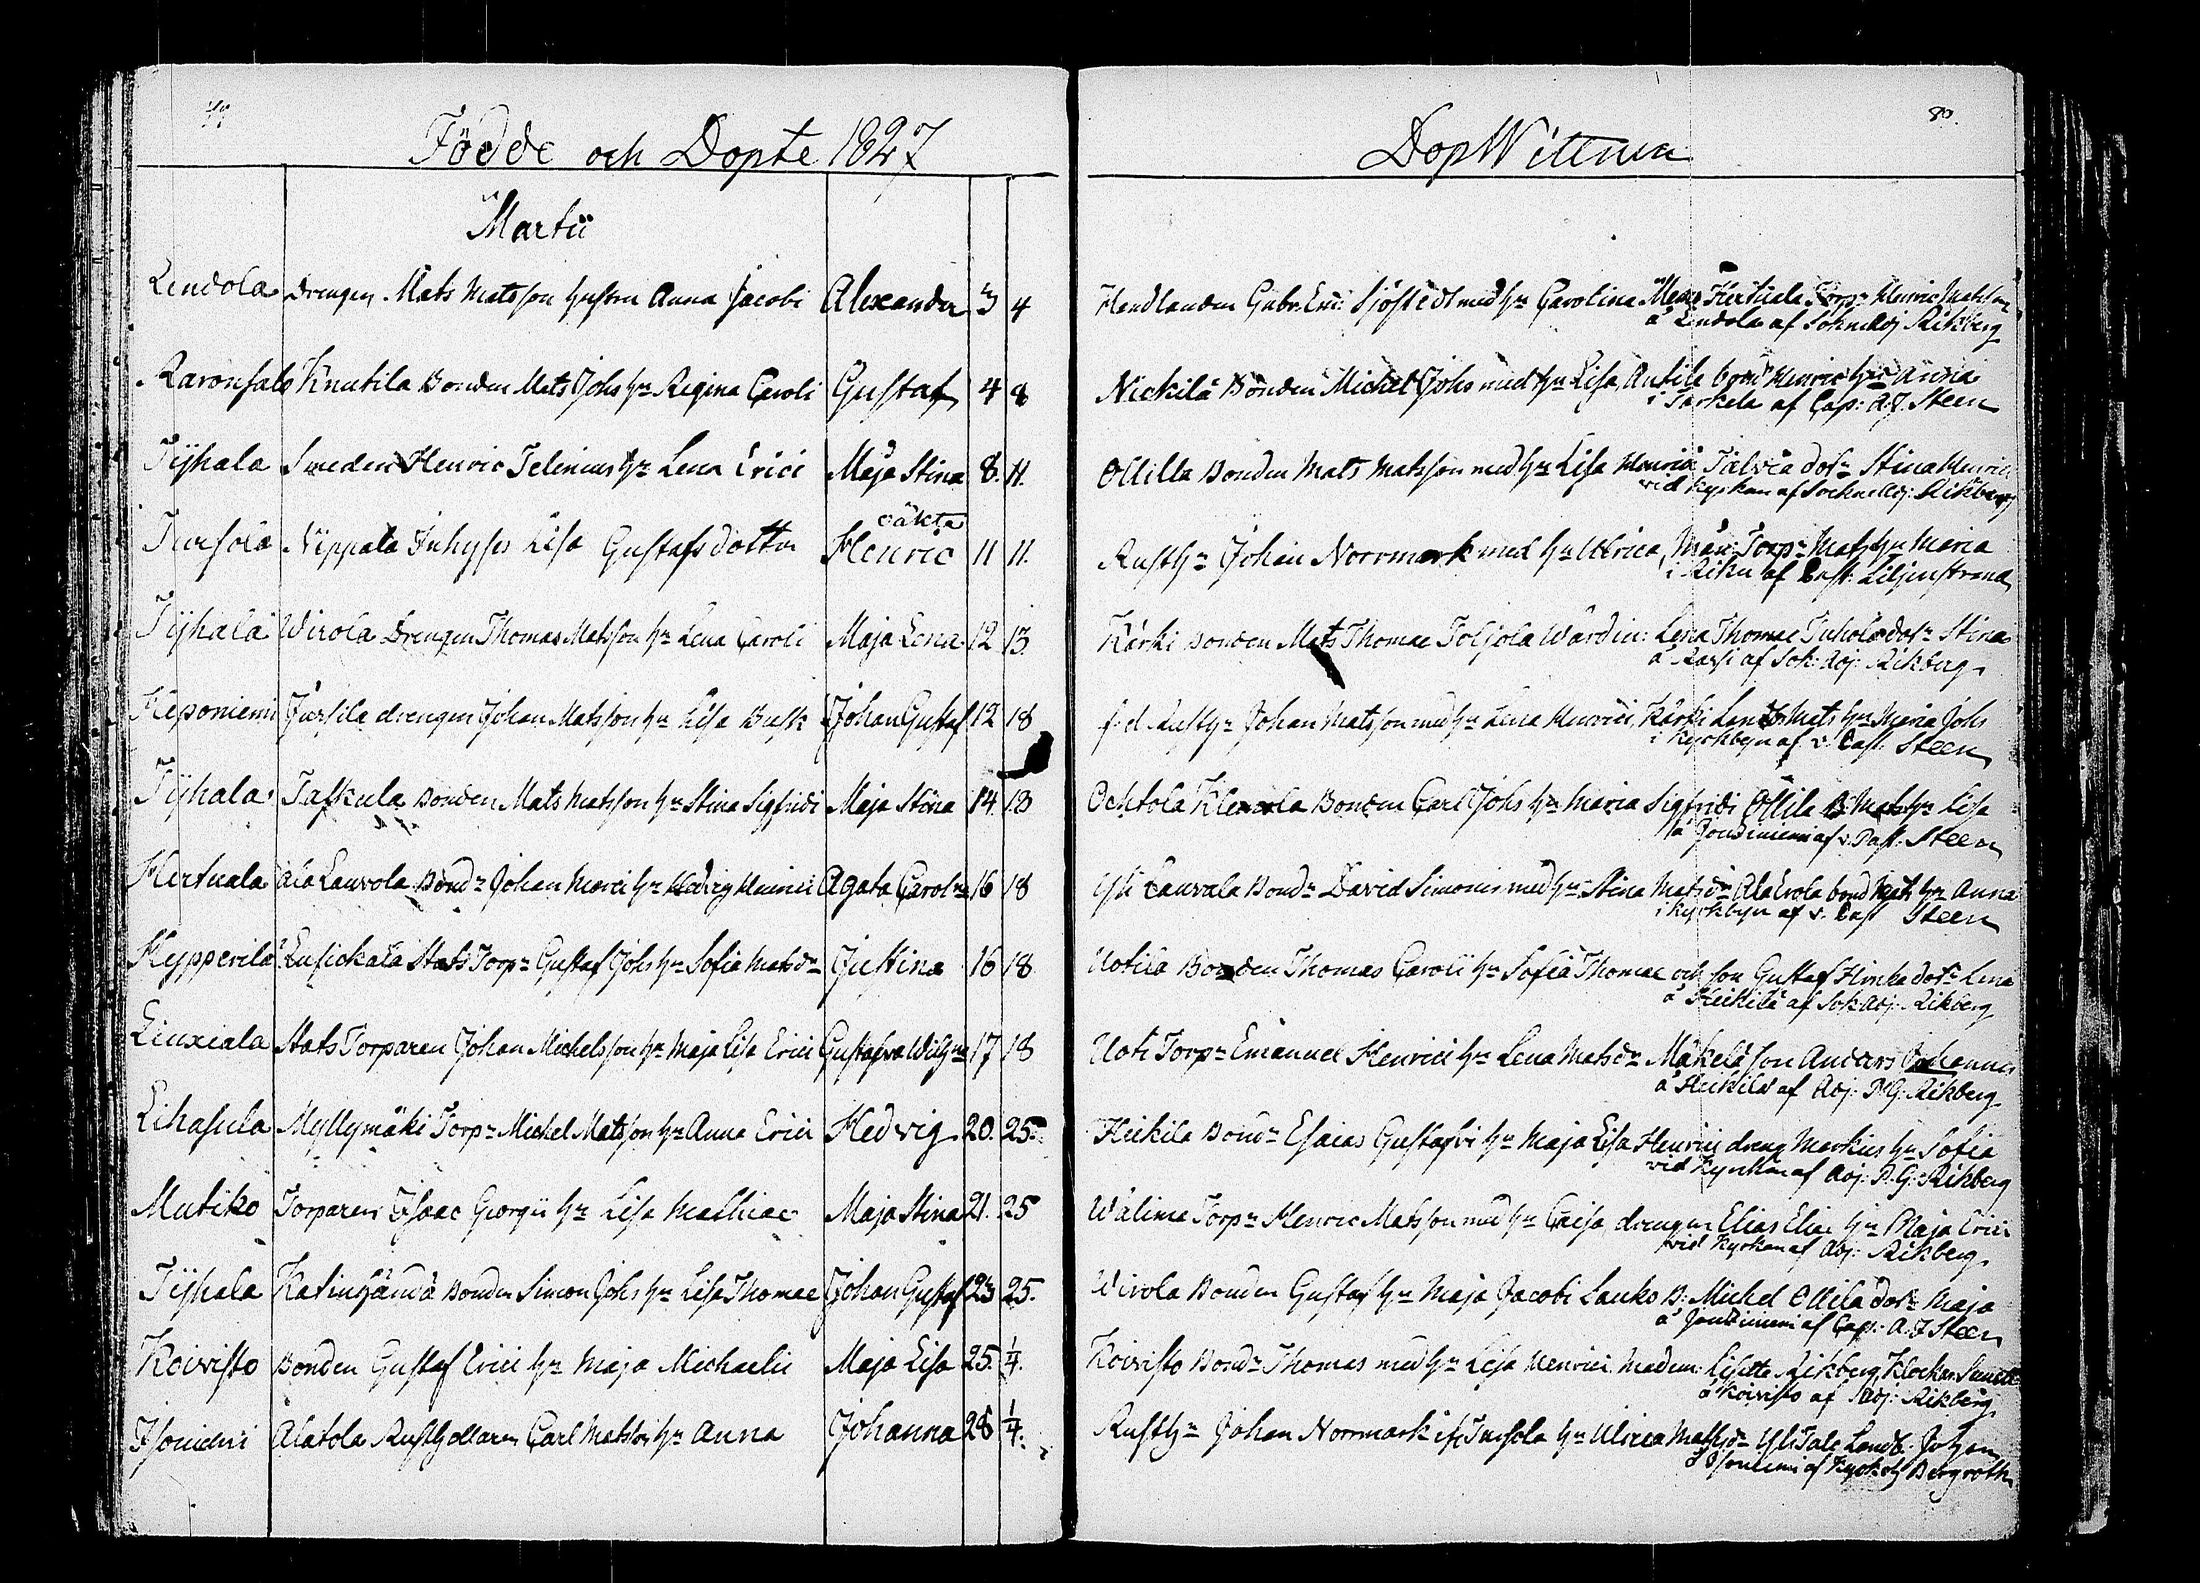 Födde och Dopte 1827
Martii
Lendola Drengen Mats Matsson hustru Anna Jacobi Alexander 3 4
Ravonsalo Knutila Bonden Mats Johs hr Regina Caroli Gustaf 4 8
Tyhala Smeden Henric Telenius hr Lena Erici Maja Stina 8. 11.
oäkta
Tursola Nippala Inhyses Lisa Gustafsdotter Henric 11 11.
Tyhala Wirola Drengen Thomas Matsson hr Lena Caroli Maja Lena 12 13
Keponiemi Jussila drengen Johan Matsson hr Lisa Busk Johan Gustaf 12 18
Tyhala Taskula Bonden Mats Matsson hr Stina Sigfridi Maja Stina 14. 18
Hertuala Ala Lauvola Bondr Johan Marci hr Hedvig Henrici Agata Carolna 16 18
Hypperilä Lusickala Stats Torpr Gustaf Johs hr Sofia Matsdr Justina 16 18
Liuxiala Stats Torparen Johan Michelsson hr Maja Lisa Erici Gustafva Wilhma 17 18
Lihasula Myllymäki Torpr Michel Matsson hr Anna Erici Hedvig 20. 25.
Mutiko Torparen Isaac Georgii hr Lisa Mathiae Maja Stina 21. 25
Tyhala Katinhändä Bonden Simon Johs hr Lisa Thomae Johan Gustaf 23 25.
Koivisto Bonden Gustaf Erici hr Maja Michaelis Maja Lisa 25. 1/4.
Isoniemi Alatola Rusthollaren Carl Matsson hr Anna Johanna 28 1/4.
80.
DopWittnen
Handlanden Gabr. Em: Sjöstedt med hr Carolina Hertuala Torpr Henric Matsson
å Lendola af Sokne Adj Rikberg
Nickilä Bonden Michel Johs med hr Lisa, Antila bond Henric hr Anna
i Sarkela af Cap: A. J. Steen
Ollilla Bonden Mats Matsson med hr Lisa Henrici Talvia dotr Stina Henrici
vid Kyrkan af Sockne Adj: Rikberg
Rusthr Johan Norrmark med hr Ulrica, Torpr Mats hr Maria
i Riku af Past: Liljenstrand
Kärki Bonden Mats Thomae Toljola Wärdin: Lena Thomae Juhola dotr Stina
å Karsi af Sok: Adj: Rikberg
f.d. Rusthr Johan Matsson med hr Lena Henrici, Kärki Landb Mats hr Maria Johs
i Kyrkbyn af v. Past. Steen
Ochtola Klemola Bonden Carl Johs hr Maria Sigfridi Ollila B: Mats hr Lisa
å Joutsiniemi af v. Past. Steen
Yli Lauvala Bondr David Simonis med hr Stina Matsdr Ala bond Mats hr Anna
i Kyrkbyn af v. Past Steen
Uotila Bonden Thomas Caroli hr Sofia Thomae och son Gustaf Himka dotr Lena
å Heikilä af Sok Adj: Rikberg
Uoti Torpr Emanuel Henrici hr Lena Matsdr Mäkelä son Anders Johannes
å Heikilä af Adj: P. G. Rikberg
Heikila Bondr Esaias Gustafvi hr Maja Lisa Henrici dreng Markus hr Sofia
vid Kyrkan af Adj: P. G: Rikberg
Wälime Torpr Henric Matsson med hr Caisa, drengen Elias Eliae hr Maja Erici
vid Kyrkan af Adj: Rikberg
Wirola Bonden Gustaf hr Maja Jacobi Lauko B: Michel Ollila dotr Maja
å Joutsiniemi af Cap: A. J Steen
Koivisto Bondr Thomas med hr Lisa Henrici Madem: Lisette Rikberg, Klockar
å Koivisto af Adj: Rikberg
Rusthr Johan Norrmark ifr Tursola hr Ulrica Mathsdr Yli Tale Landb: Johan
å Isoniemi af Kyrkoh Bergroth